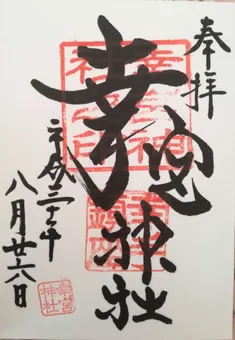 奉拝
幸宮神社
令和二年
八月廿六日
幸宮神社